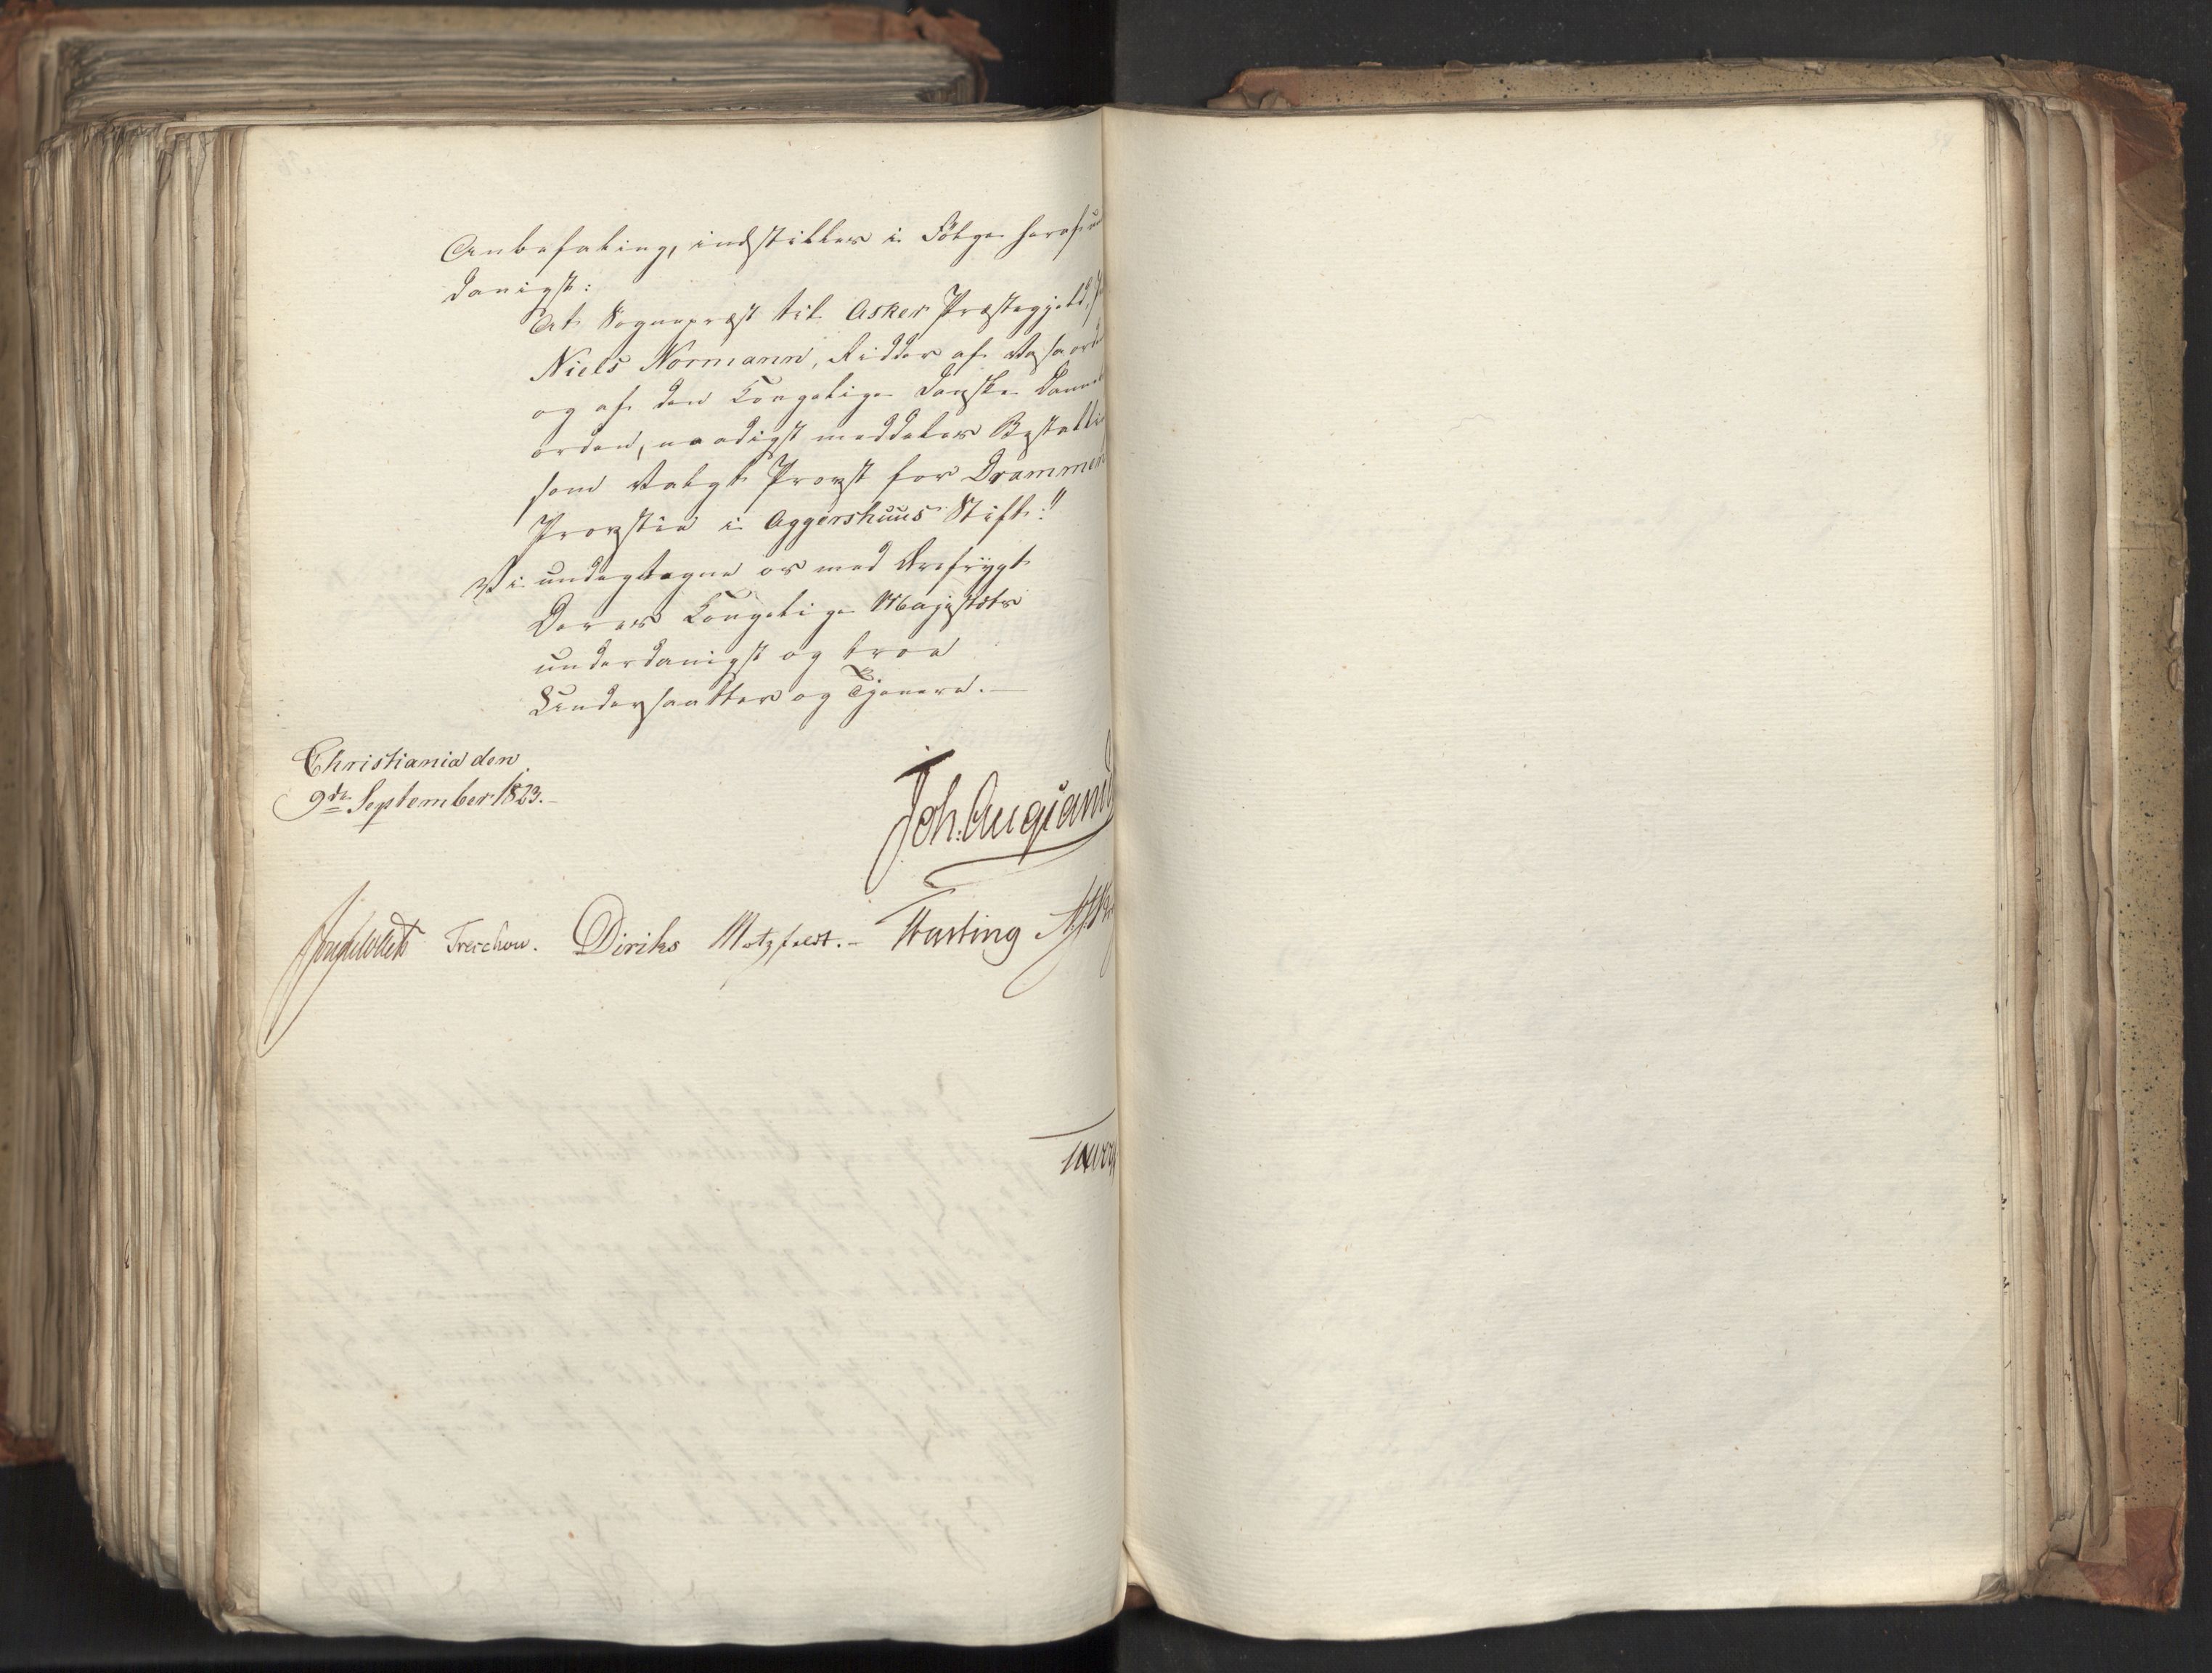 Anbefaling, indstilles i Følge heraf un
danigst:
At Sognepræst til Asker Præstegjeld,
Niels Normann, Ridder af Vasaorde
og af den Kongelige Danske Danneb
orden, naadigst meddeles Bestalli
som Valgt Provst for Drammens
Provstie i Aggershuus Stift."
Vi undertegne os med Ærefrygt
Deres Kongelige Majestæts
underdanigst og troe
Undersaatter og Tjenere.—
Christiania den
9de September 1823.—
Joh. Aug. Sand
Treschow. Diriks Motzfeldt.— Fasting